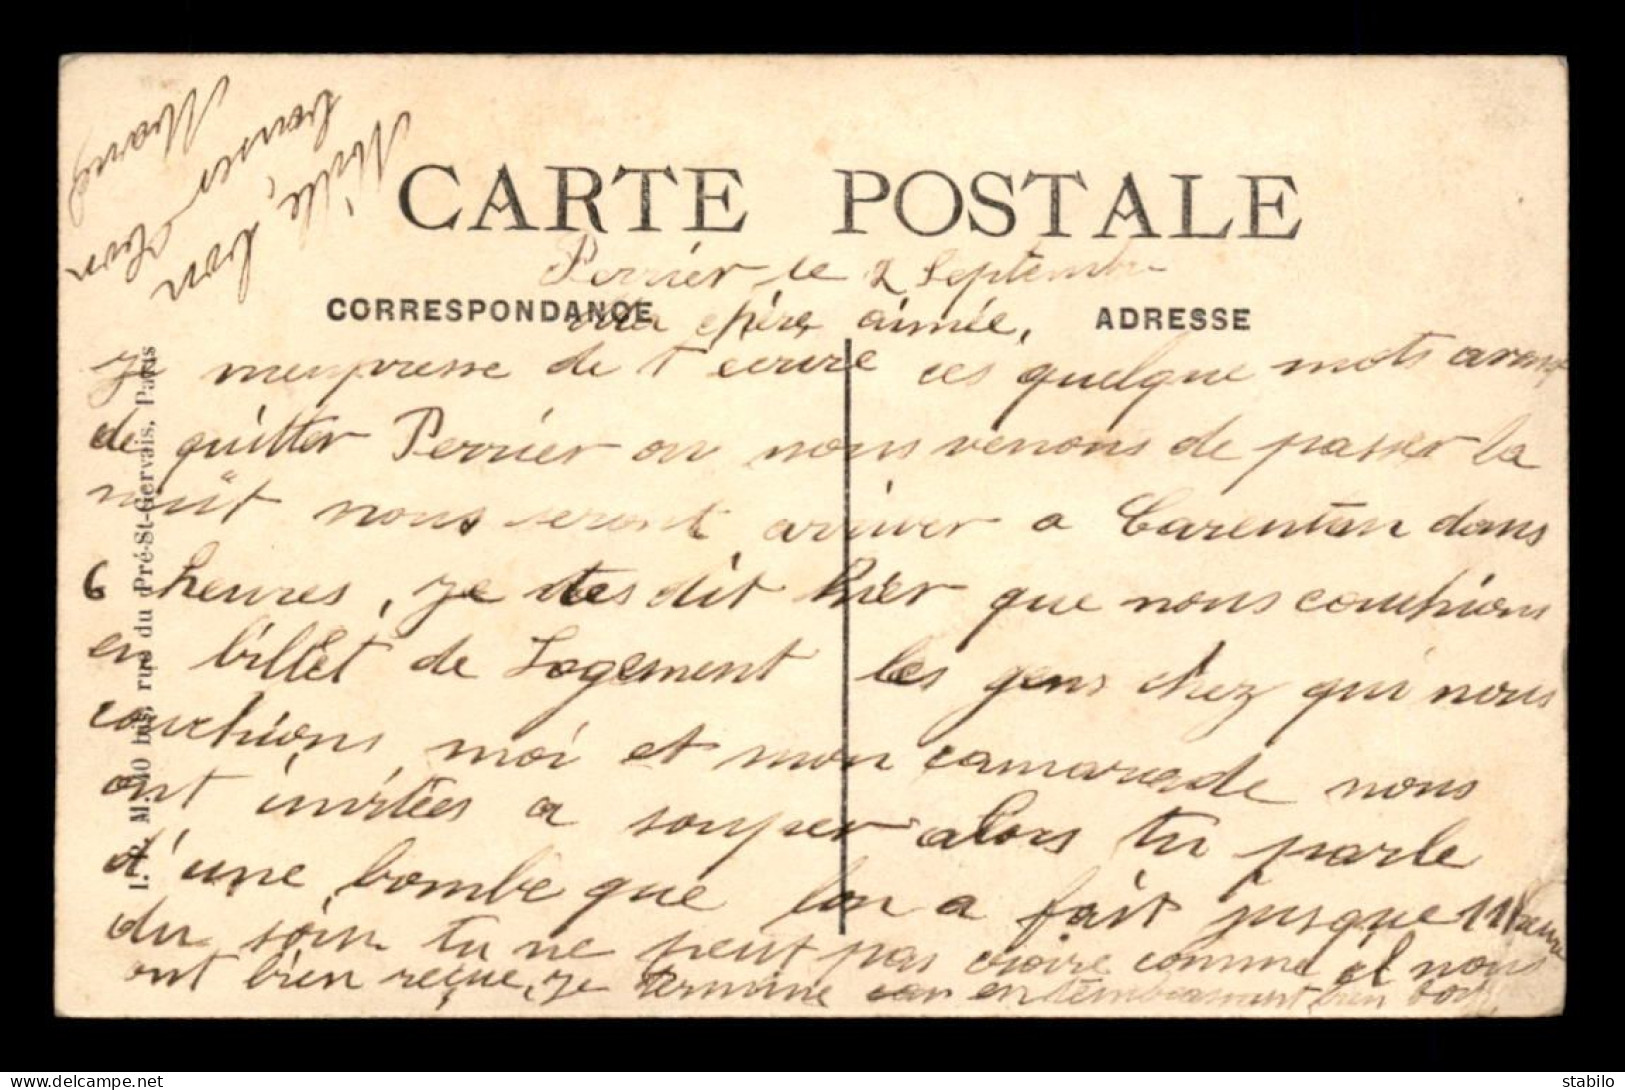 CARTE POSTALE
Perrier le 2 Septembre
CORRESPONDANCE
Ma chère aimée,
ADRESSE
Je m'empresse de t'ecrire ces quelque mots avant
de quitter Perrier ou nous venons de passer la
nuit nous seront arriver a Carentan dans
6 heures, je tes dit hier que nous couchions
en billet de Logement les gens chez qui nous
couchions moi et mon camarade nous
ont invitées a souper alors tu parle
d'une bombe que lon a fait jusque 11 heure
du soir tu ne peut pas croire comme il nous
ont bien reçue, je termine en t'embrassant bien
Mille bon
baiser
Marcel
I. P. M. 40 bis, rue du Pré-St-Gervais, Paris
stabilo
delcampe.net